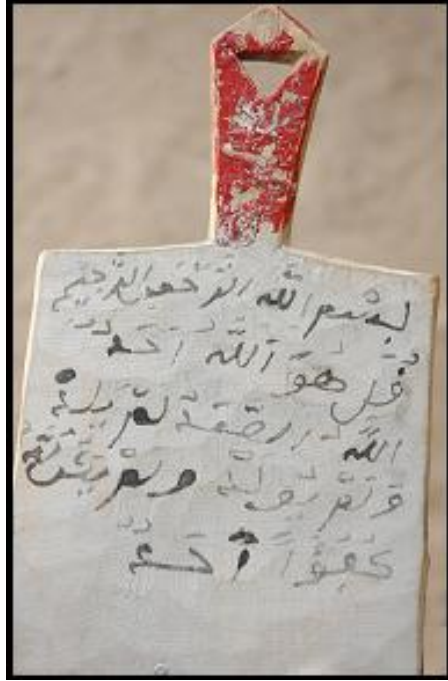 بِسْمِ اللَّهِ الرَّحْمَنِ الرَّحِيمِ
قُلْ هُوَ اَللَّهُ اَحَدٌ
اللَّهُ الصَّمَدُ لَمْ يَلِدْ
وَلَمْ يُولَدْ وَلَمْ يَكُن لَّهُ
كُفُوًا اَحَدٌ